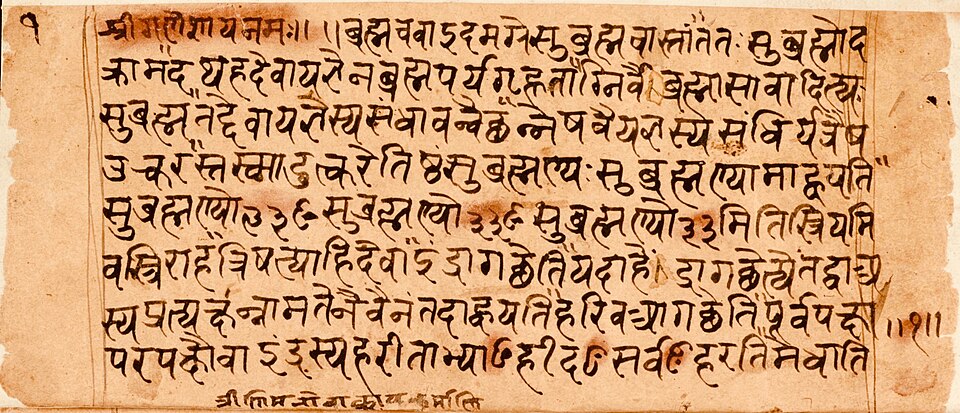 १
श्रीगणेशायनमः॥ ॥ब्रह्मचवाऽइदमग्रेसुब्रह्मचास्तांततःसुब्रह्मोद
क्रामदथहदेवायज्ञेनब्रह्मपर्यगृह्णताग्निर्वैब्रह्मासावादित्यः
सुब्रह्मतद्देवायज्ञस्यसंधावन्वैछन्नेषवैयज्ञस्यसंधिर्यत्रैष
उत्करस्तस्मादुत्करेतिष्ठंसुब्रह्मण्यःसुब्रह्मण्यामाह्वयति
सुब्रह्मण्यो३३ꣳसुब्रह्मण्यो३३ꣳसुब्रह्मण्यो३३मितिस्त्रियमि
वस्त्रिराहत्रिषत्याहिदेवाऽइंद्रागछेतियदाहेंद्रागछेत्येतद्वाअ
स्यप्रत्यक्षन्नामतेनैवैनंतदाह्वयतिहरिवआगछेतिपूर्वपक्षा
परपक्षौवाऽइंद्रस्यहरीताभ्याꣳहीदꣳसर्वꣳहरतिमेधाति
॥१॥